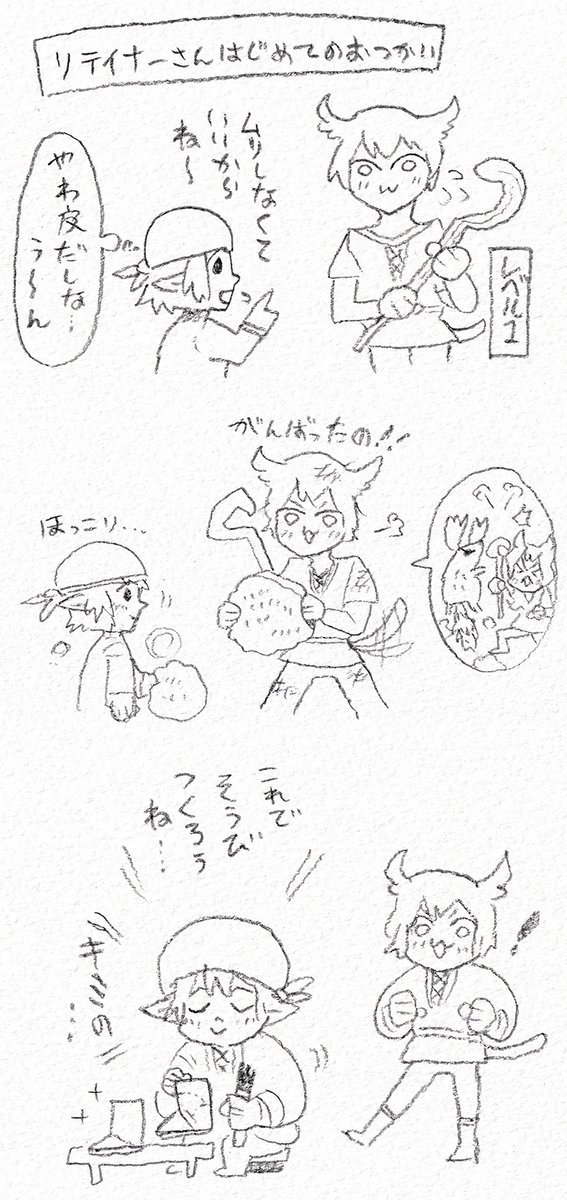 リテイナーさんはじめてのおつかい
レベル1
ムリしなくて
いいから
ね〜
やわ皮だしな…
う〜ん
がんばったの!!
ほっこり…
これで
そうび
つくろう
ね…
キミの…